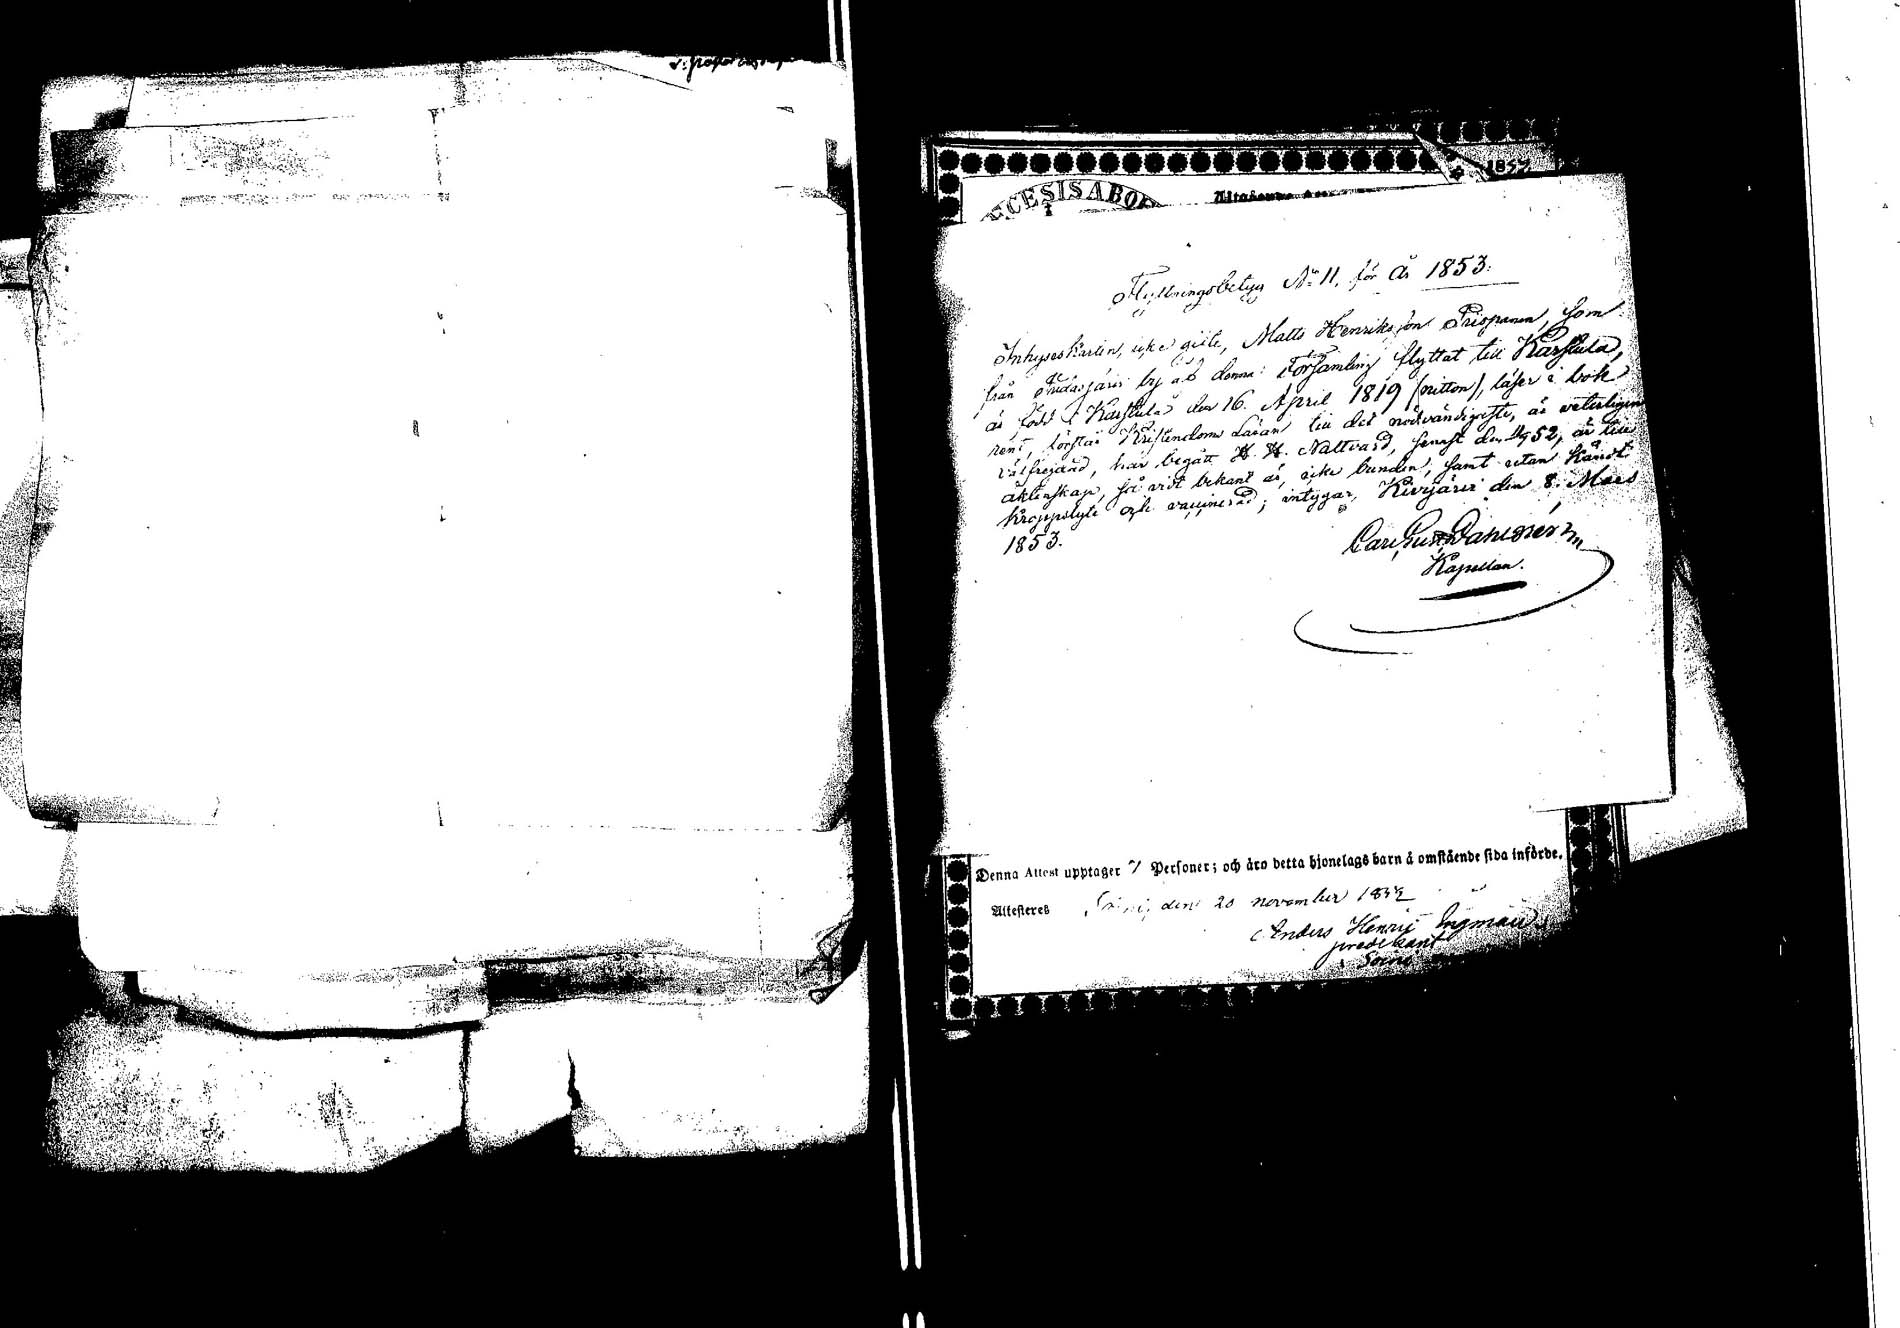 1853
Flyttningsbetyg No 11. för År 1853.
Inhyseskarlen, icke gifte, Matts Henriksson Piispanen, som
från Pudasjärvi by af denna Församling flyttat till Karstula,
är född i Karstula den 16. April 1819 (nitton), läser i bok
rent, förstår Kristendoms Läran till det nödvändigaste, är veterligen
välfrejdad, har begått H. H. Nattvard, senast den 52, är till
äktenskap, så vidt bekant är, icke bunden, samt utan kändt
kroppslyte och vaccinerad; intygar, Kivijärvi den 8. Mars
1853.
Carl Gust.
Kapellan.
Denna Attest upptager 7 Personer; och äro detta hjonelags barn å omstående sida införde.
Attesteras Soini, den 20 november 18
Anders Henric Ingman
predikant
Soini